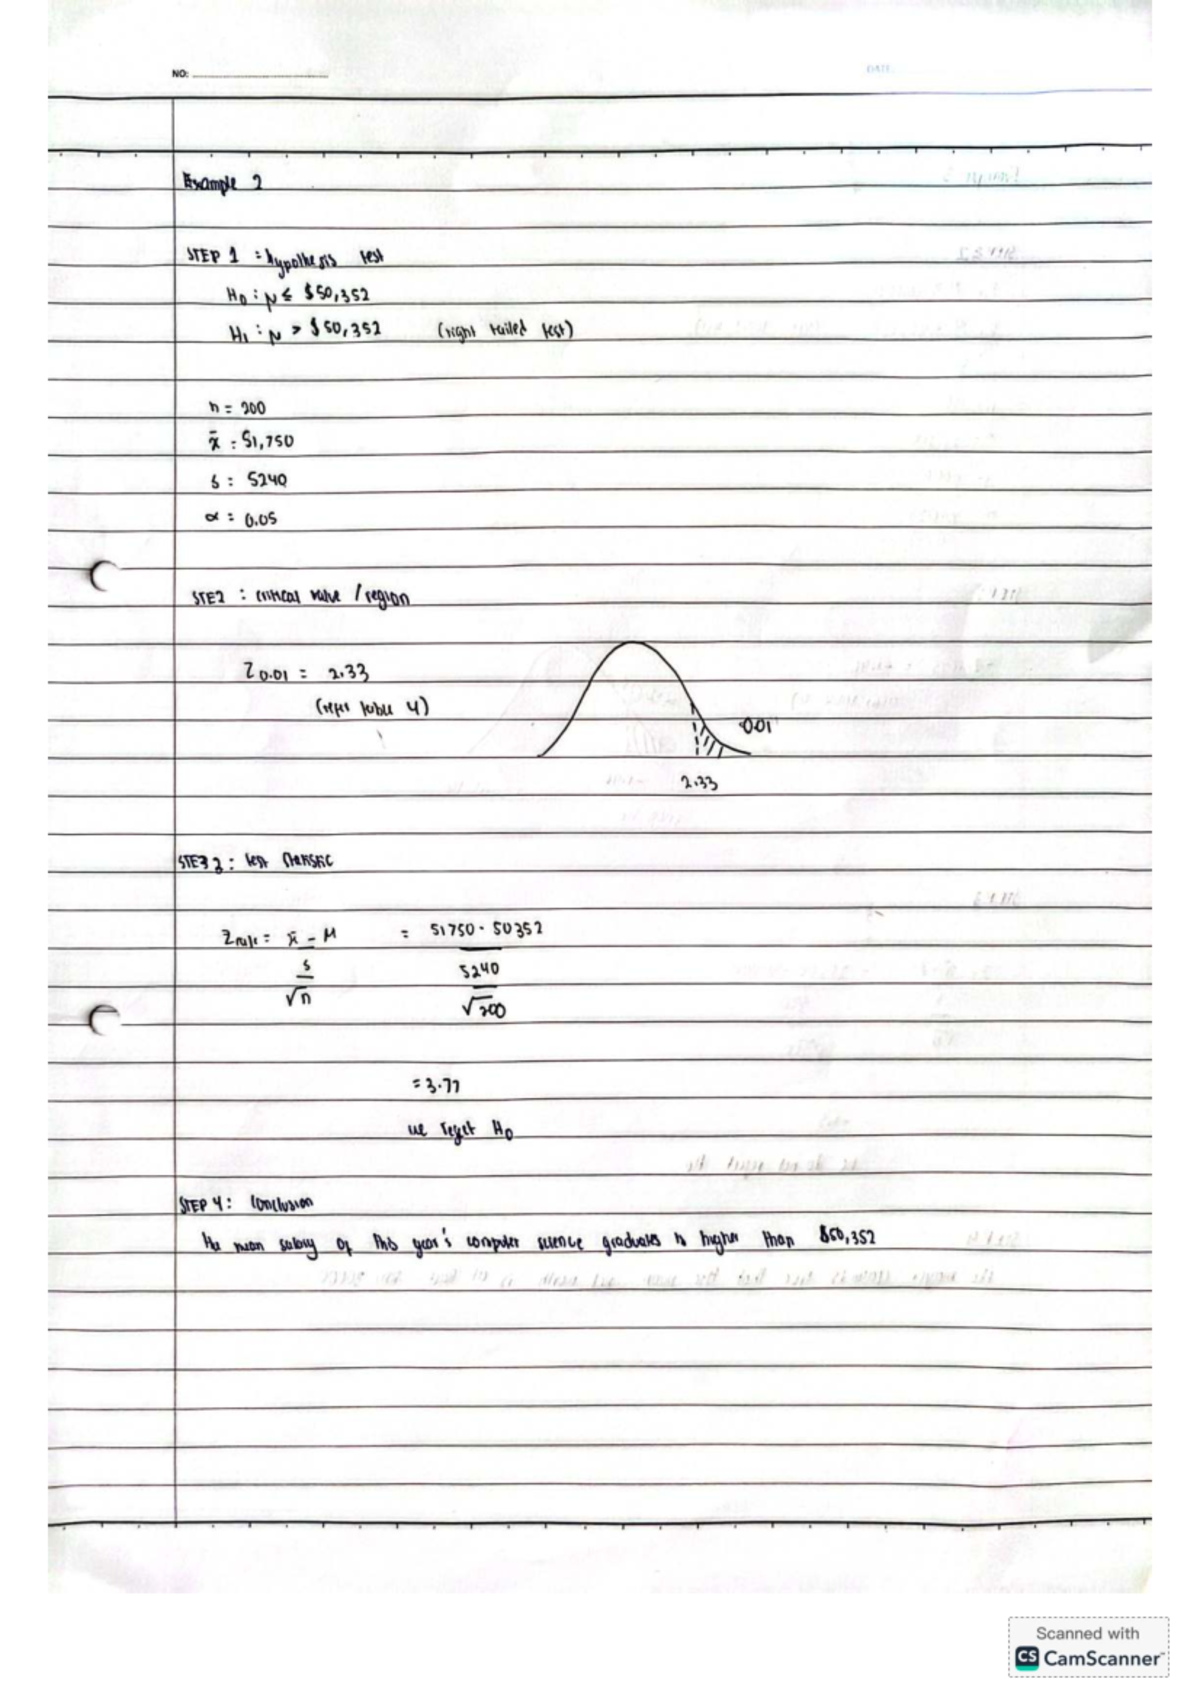 NO:
DATE:
Example 2
STEP 1 : hypothesis test
H0 : μ ≤ $50,352
H1 : μ > $50,352 (right tailed test)
n = 200
x̄ : 51,750
s : 5240
α = 0.05
STE2 : critical value / region
Z0.01 = 2.33
(refer table 4)
0.01
2.33
STE3 3 : test statistic
Zcalc = x̄ - μ = 51750 - 50352
s 5240
√n √200
= 3.77
we reject H0
STEP 4 : Conclusion
the mean salary of this year's computer science graduates is higher than $50,352
Scanned with
CS CamScanner